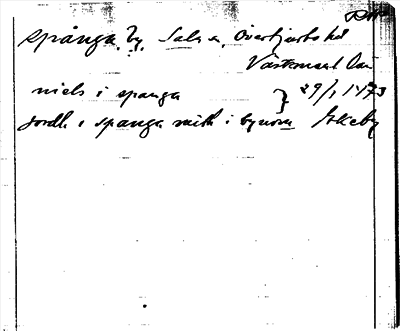 spånga, by, Sala s, Övertjurbo hd
Västmanl
niels i spanga } 29/1 1473
jordh i spanga mith i bynom